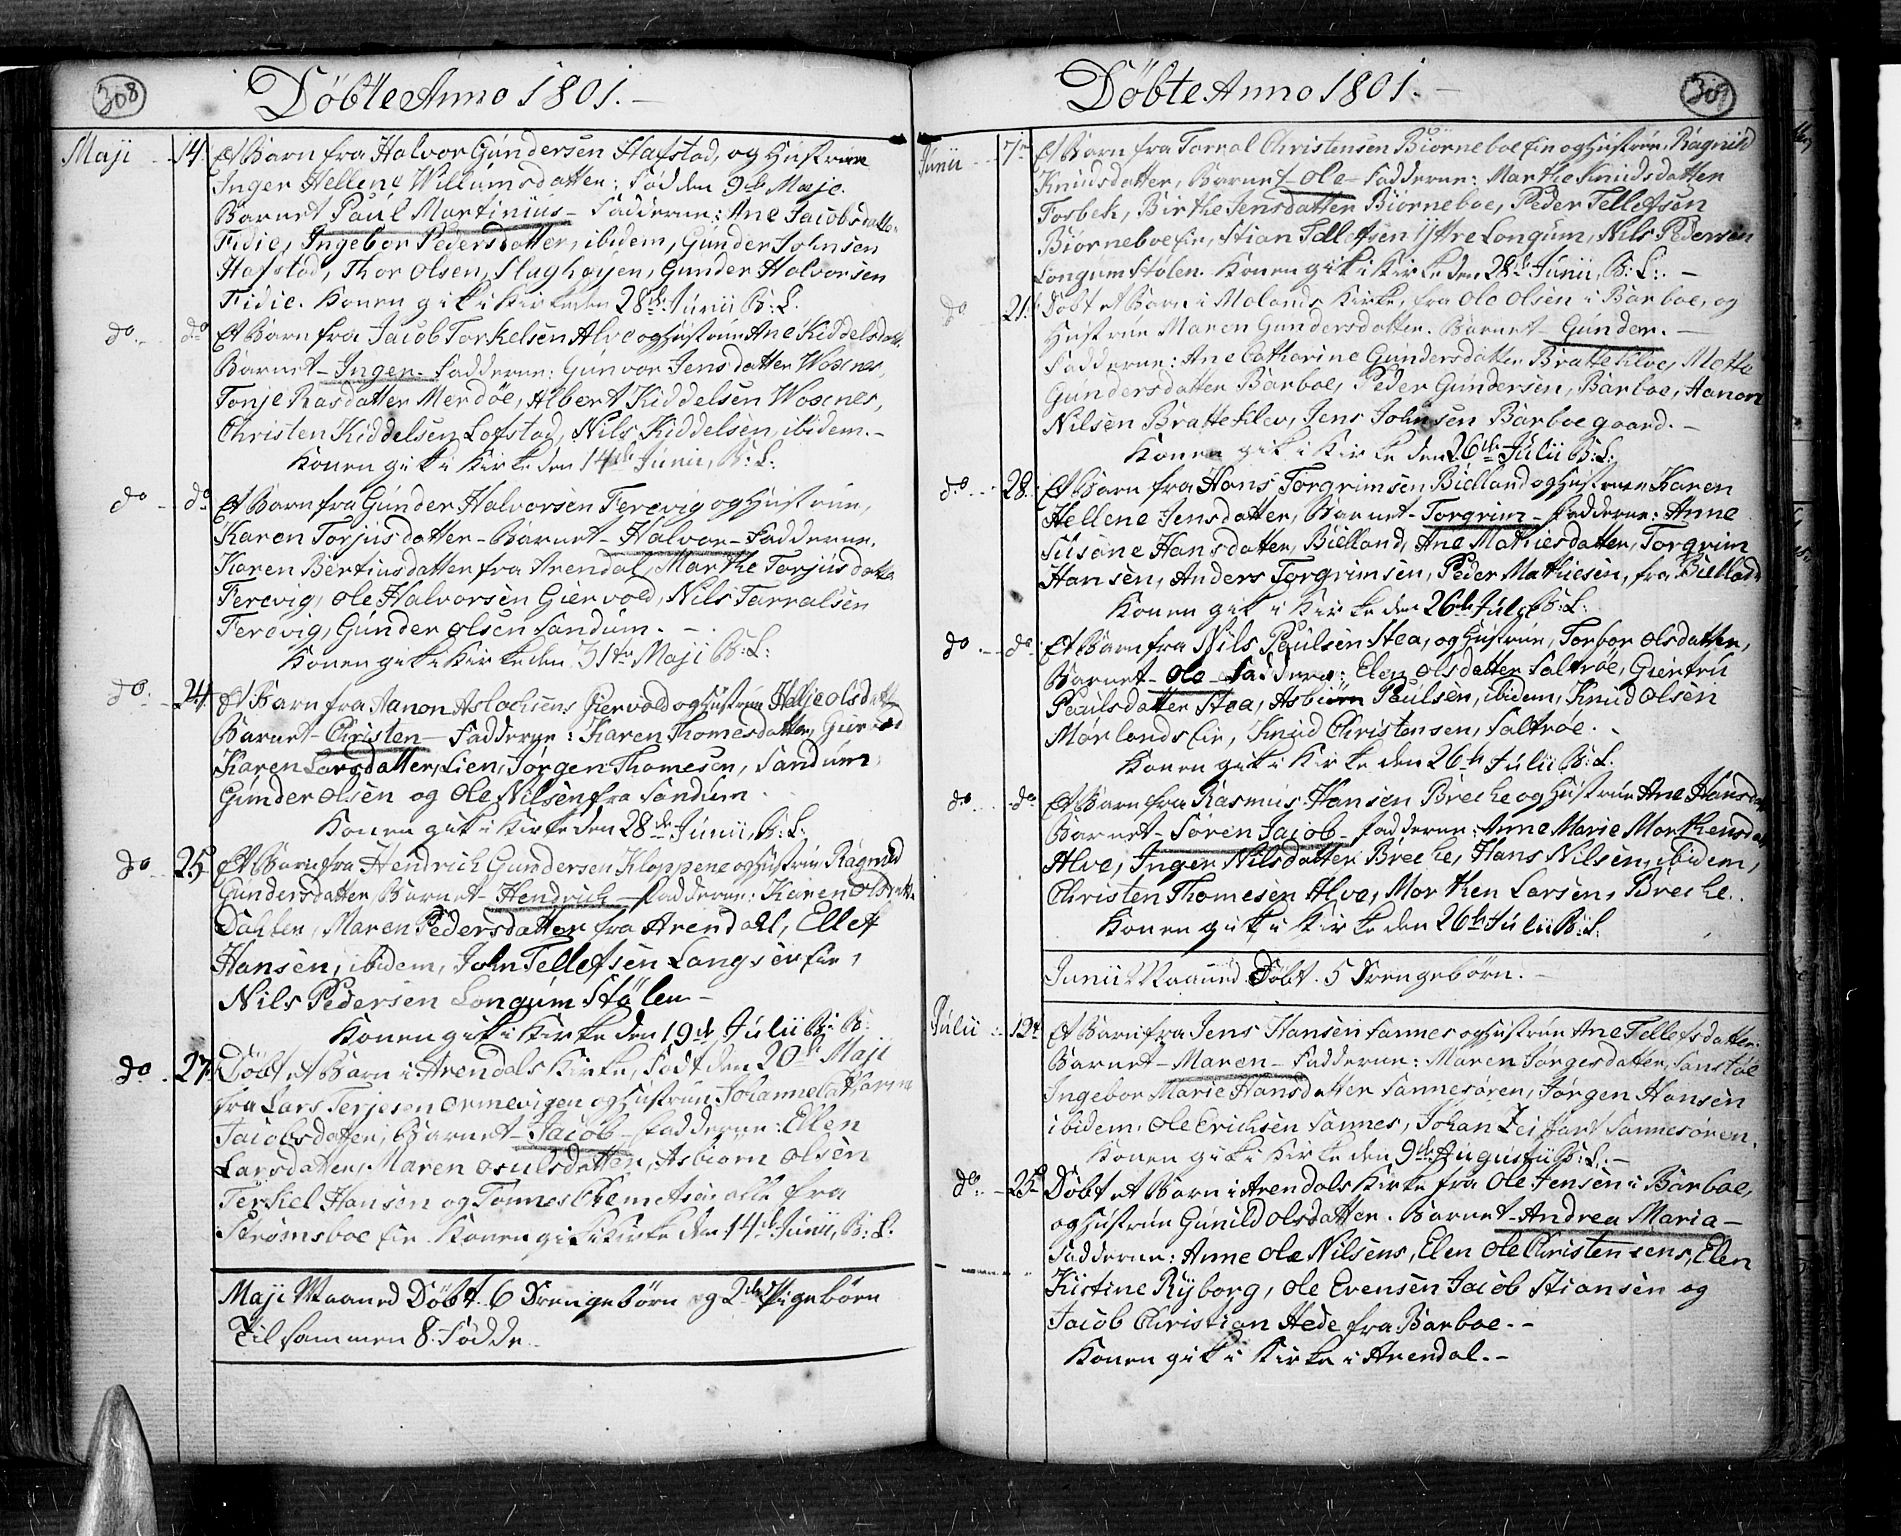 308
Döbte Anno 1801.
Maji 14 Et Barn fra Halvor Gundersen Hafstad, og Hustrue
Inger Hellene Willumsdatter, Född den 9de Maje.
Barnet Paul Martinius - Fadderne: Ane Jacobsdatter
Fidie, Ingebor Pedersdatter, ibidem, Gunder Johnsen
Hafstad, Thor Olsen, Slaghøyen, Gunder Halvorsen
Fidie. Konen gik i Kirke den 28de Junii B: L.
do do Et Barn fra Jacob Torkelsen Alve og Hustrue Ane Kiddelsdatt.
Barnet - Inger - Fadderne: Gunvor Jensdatter Woxnes,
Tonje Rasdatter Merdöe, Albert Kiddelsen Woxnes,
Christen Kiddelsen Lofstad, Nils Kiddelsen, ibidem. -
Konen gik i Kirke den 14de Junii, B: L:
do do Et Barn fra Gunder Halvorsen Ferevig og Hustrue,
Karen Torjusdatter - Barnet - Halvor - Fadderne,
Karen Bertiusdatter fra Arendal, Marthe Torjusdatter
Ferevig, Ole Halvorsen Giervold, Nils Tarralsen
Ferevig, Gunder Olsen Sandum. -
Konen gik i Kirke den 31te Maji B: L:
do. 24 Et Barn fra Aanon Aslachsens Giervold og Hustrue Helje Olsdatter
Barnet - Christen - Fadderne: Karen Thomesdatter,
Karen Larsdatter, Lien, Jörgen Thomesen, Sandum,
Gunder Olsen og Ole Nilsen fra Sandum.
Konen gik i Kirke den 28de Junii, B: L:
do 25 Et Barn fra Hendrich Gundersen Kloppene og Hustrue Ragnild
Gundersdatter Barnet - Hendrich - Fadderne: Karen Olsdatter
Dahlen, Maren Pedersdatter fra Arendahl, Ellef
Hansen, ibidem, John Tellefsen Langsæ Eie,
Nils Pedersen Longum Stølen -
Konen gik i Kirke den 19de Julii B: L:
do. 27 Döbt et Barn i Arendals Kirke, Födt den 20de Maji
fra Lars Terjesen Ormevigen og Hustrue Johanne Cathrine
Jacobsdatter, Barnet - Jacob - Fadderne: Ellen
Larsdatter, Maren Osulsdatter, Asbiørn Olsen
Terkel Hansen og Tönnes Clemetsen alle fra
Strømsboe Eie Konen gik i Kirke den 14de Junii, B: L.
Maji Maaned Döbt. 6 Drengebörn og 2de Pigebörn
Tilsammen 8. Födde.
309
Döbte Anno 1801.
Junii 7de Et Barn fra Tarral Christensen Biörneboe Eie og Hustrue Ragnild
Knudsdatter, Barnet - Ole - Fadderne: Marthe Knudsdatter
Fosbek, Birthe Jensdatter Biörneboe, Peder Tellefsen
Biörneboe Eie, Stian Tellefsen Yttre Longum, Nils Pedersen
Longum Stølen. Konen gik i Kirke den 28de Junii, B: L: -
do 21. Döbt et Barn i Molands Kirke, fra Ole Olsen i Barboe, og
Hustrue Maren Gundersdatter. Barnet - Gunder. -
Fadderne: Ane Cathrine Gundersdatter Bratteklev, Mette
Gundersdatter Barboe, Peder Gundersen, Barboe, Hanon
Nilsen Bratteklev, Jens Johnsen Barboegaard. -
Konen gik i Kirke den 26de Julii B: L:
do. 28. Et Barn fra Hans Torgrimsen Bielland og Hustrue Karen
Hellene Jensdatter, Barnet - Torgrim - Fadderne: Anne
Susane Hansdatter, Bielland, Ane Mathiesdatter, Torgrim
Hansen, Anders Torgrimsen, Peder Mathiesen, fra Bielland
Konen gik i Kirke den 26de Julii B: L:
do. do Et Barn fra Nils Poulsen Stea, og Hustrue, Torbor Olsdatter,
Barnet - Ole - Fadderne: Elen Olsdatter Saltröe, Giertru
Poulsdatter Stea, Asbiörn Poulsen, ibidem, Knud Olsen
Mørlands Eie, Knud Christensen, Saltröe.
Konen gik i Kirke den 26de Julii B: L.
do. do Et Barn fra Rasmus Hansen Breche og Hustrue Ane Hansdatter
Barnet - Sören Jacob - Fadderne: Anne Marie Morthensdatter
Alve, Inger Nilsdatter Breche, Hans Nilsen, ibidem,
Christen Thomesen Alve, Morthen Larsen, Breche.
Konen gik i Kirke den 26de Julii B: L.
Junii Maaned Döbt. 5 Drengebörn. -
Julii 12te Et Barn fra Jens Hansen Sannes og Hustrue Ane Tellefsdatter
Barnet - Maren - Fadderne: Maren Jörgesdatter, Sanstöe
Ingebor Marie Hansdatter Sannesøren, Jörgen Hansen
ibidem. Ole Erichsen Sannes, Johan Zeifart Sannesøren.
Konen gik i Kirke den 9de Augustii B: L: -
do. 25 Döbt et Barn i Arendals Kirke fra Ole Jensen i Barboe,
og Hustrue Gunild Olsdatter. Barnet - Andrea Maria -
Fadderne: Anne Ole Nilsens, Elen Ole Christensens, Elen
Kistine Ryborg, Ole Evensen Jacob Stiansen og
Jacob Christian Hede fra Barboe. -
Konen gik i Kirke i Arendal. -